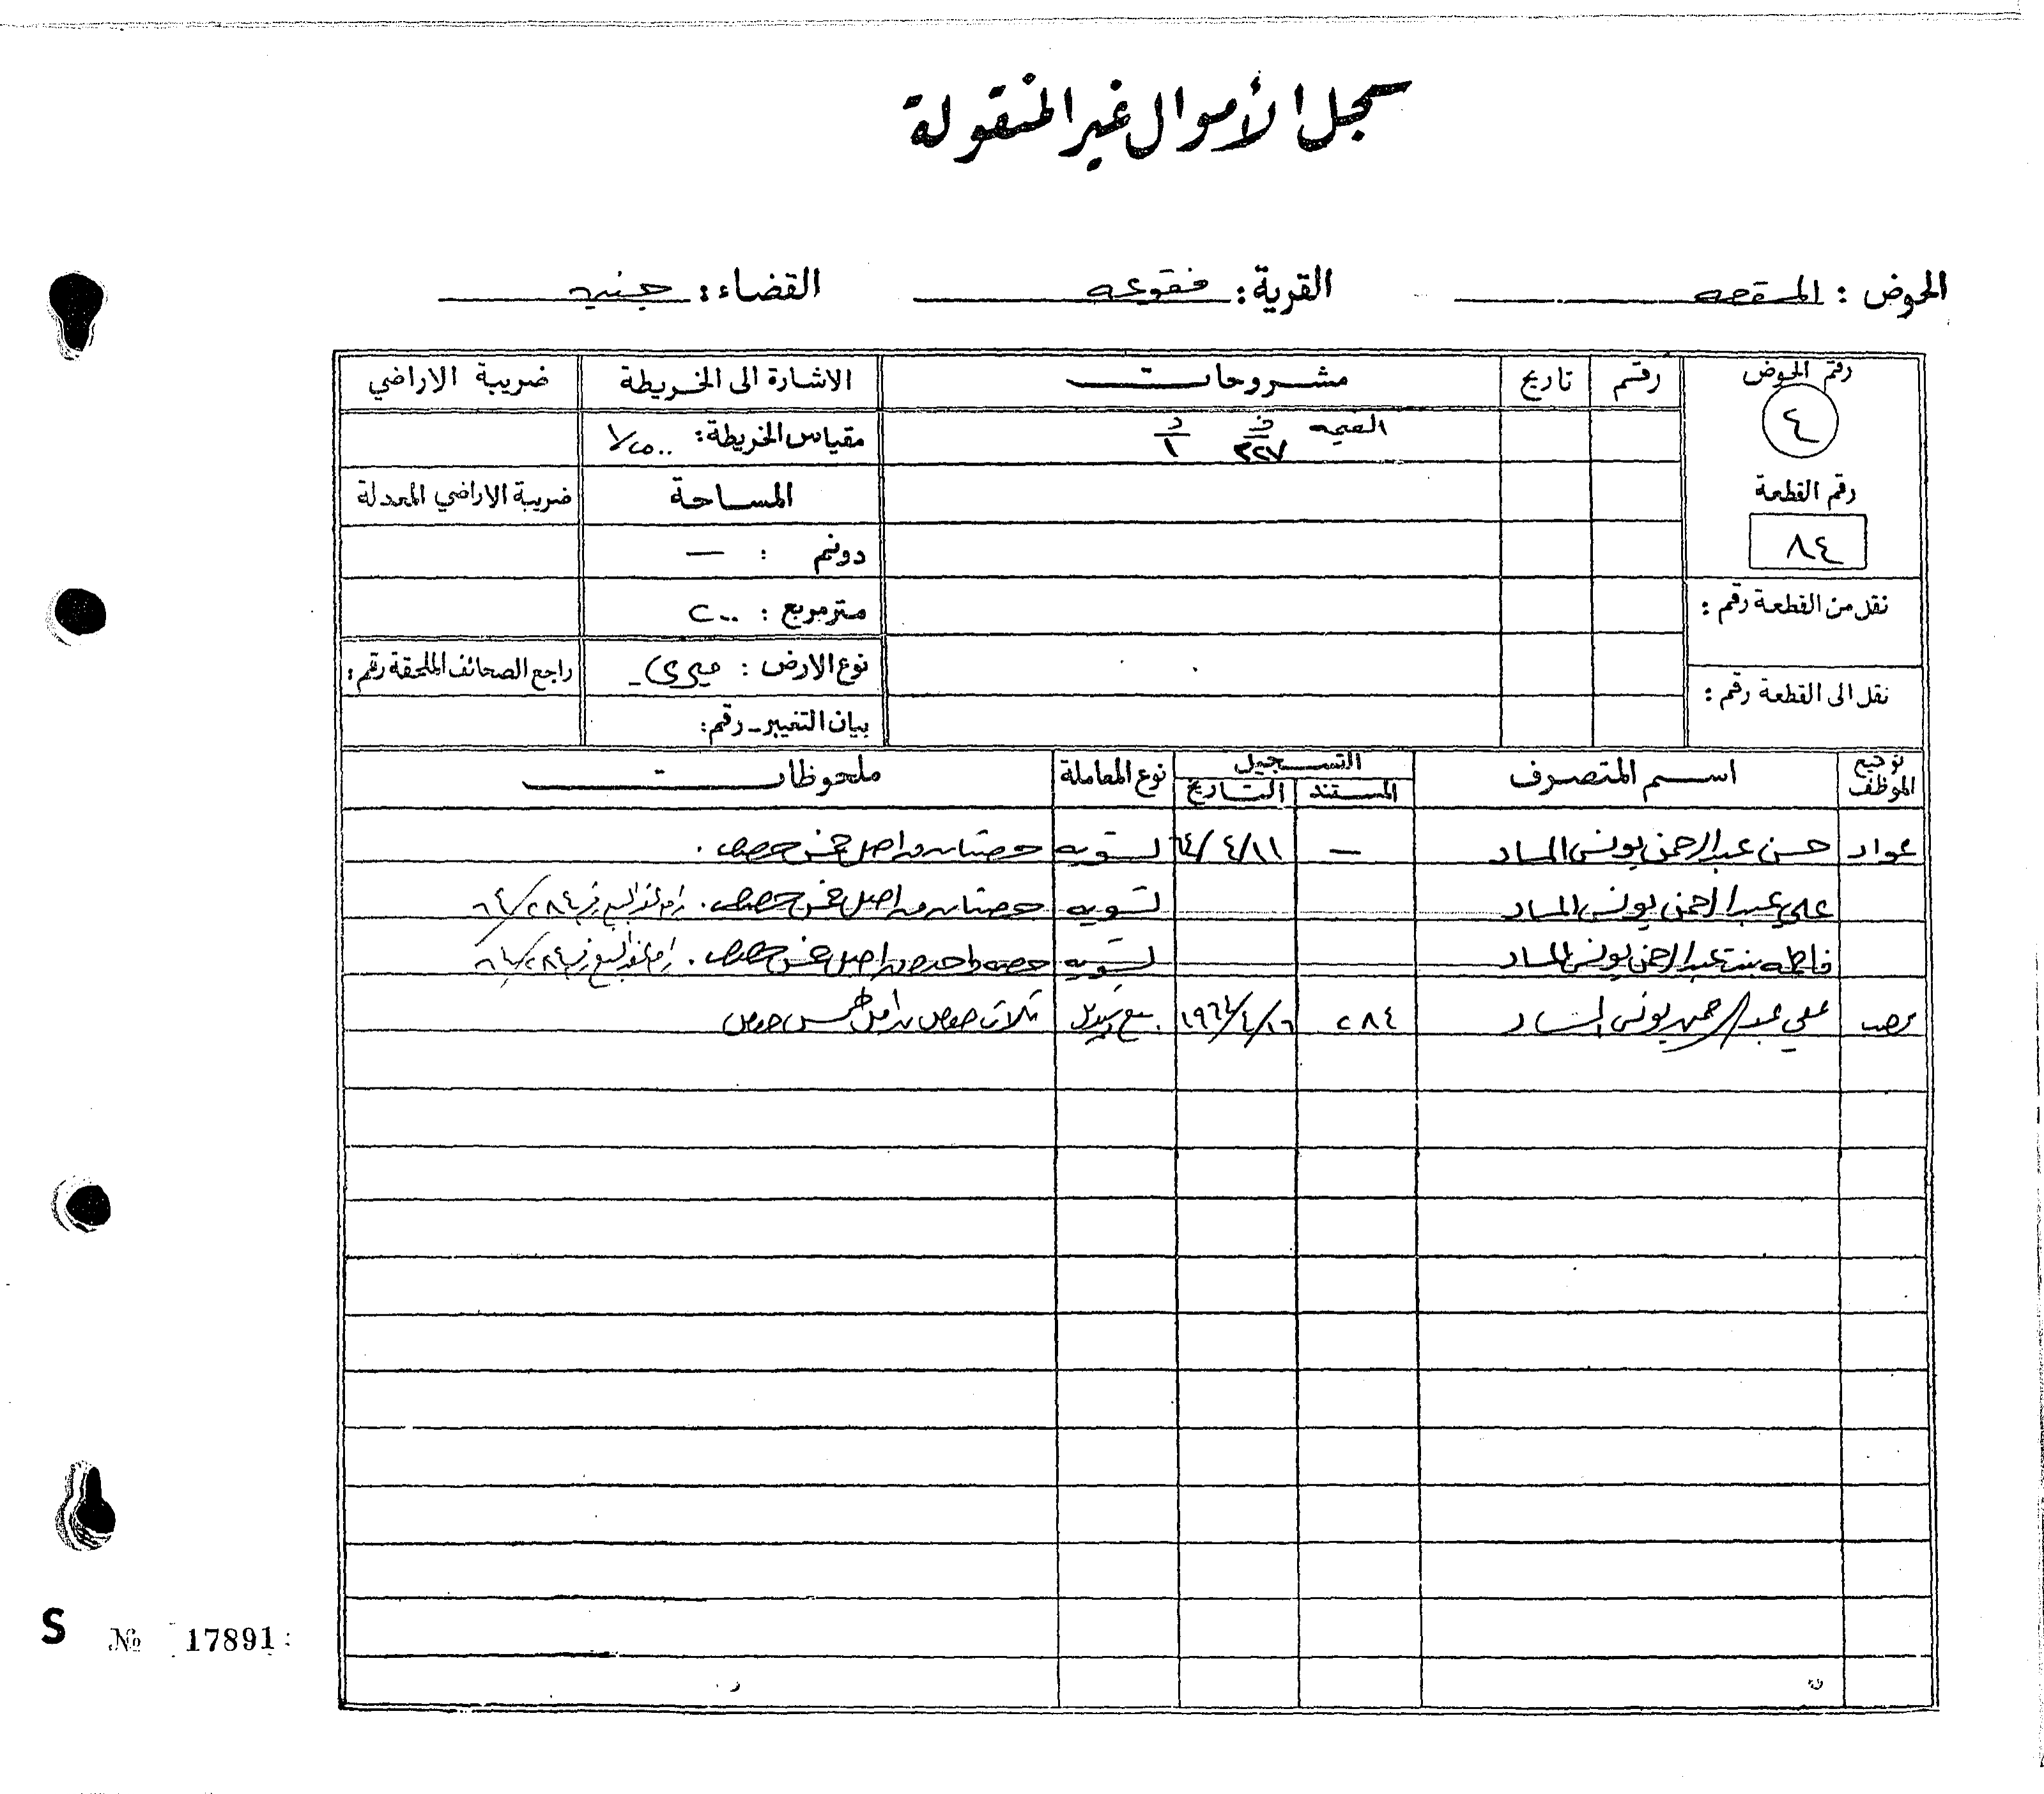 سجل الأموال غير المنقولة
الحوض : المسقعه القرية : فقوعه القضاء : جنين
رقم الحوض رقم تاريخ مشروحات الاشارة الى الخريطة ضريبة الاراضي
٤ القيمه ف ٣٢٧ د ١ مقياس الخريطة : ١/٢٥٠٠
رقم القطعة المساحة ضريبة الاراضي المعدلة
٨٤ دونم : —
نقل من القطعة رقم : مترمربع : ٢٠٠
نقل الى القطعة رقم : نوع الارض : ميري - راجع الصحائف الملحقة رقم :
بيان التغيير - رقم :
توقيع الموظف اسم المتصرف التسجيل نوع المعاملة ملحوظات
المستند التاريخ
عواد حسن عبد الرحمن يونس المساد — ٦٤/٤/١١ تسويه حصتان من اصل خمس حصص .
علي عبد الرحمن يونس المساد تسويه حصتان من اصل خمس حصص . ٦٤/٢٨٤
فاطمه بنت عبد الرحمن يونس المساد تسويه حصه واحده من اصل خمس حصص . ٦٤/٢٨٤
علي عبد الرحمن يونس المساد ٢٨٤ ١٩٦٤/٤/١٦ بيع ثلاث حصص من اصل خمس حصص
S № 17891